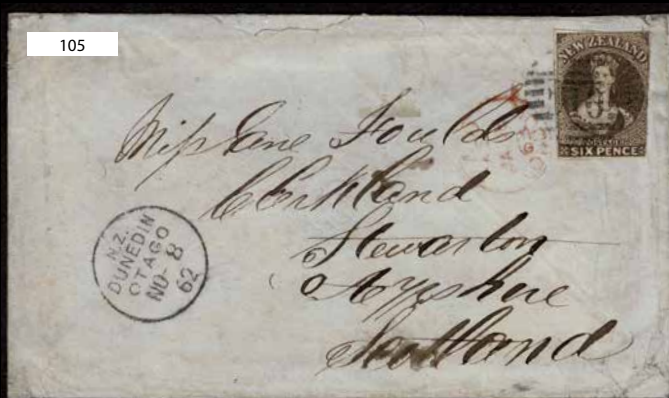 105
NEW ZEALAND
POSTAGE
SIX PENCE
Miss Jane Foulds
Clerkland
Stewarton
Ayrshire
Scotland
N.Z.
DUNEDIN
OTAGO
NO- 8
62